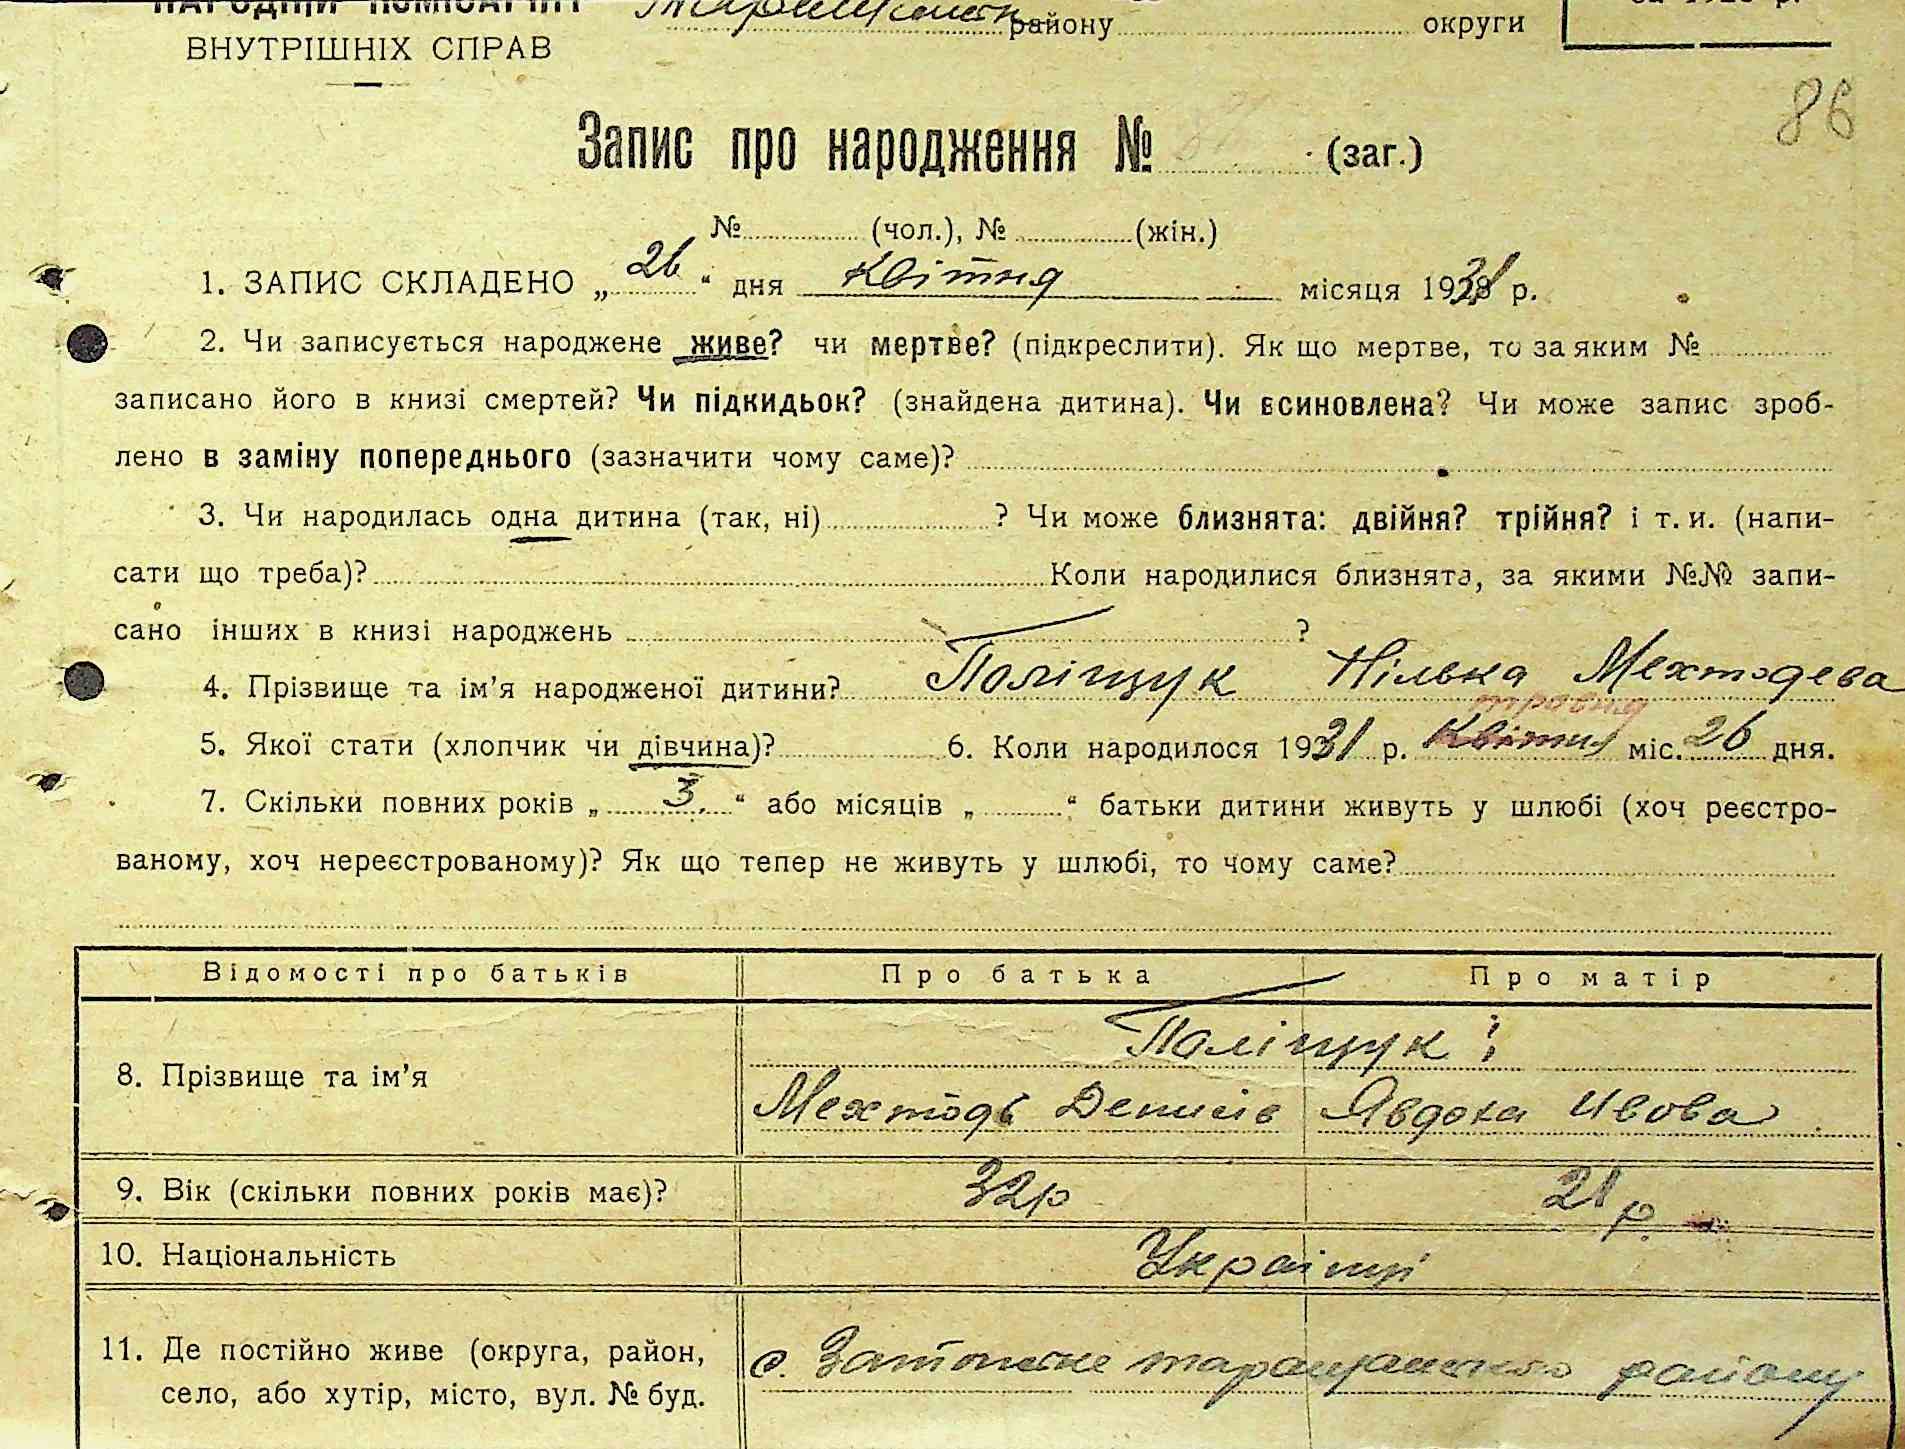 НАРОДНІЙ КОМІСАРІЯТ району округи
ВНУТРІШНІХ СПРАВ
86
Запис про народження № 81 (заг.)
№ (чол.), № (жін.)
1. ЗАПИС СКЛАДЕНО „ 26 “ дня Квітня місяця 1931 р.
2. Чи записується народжене живе? чи мертве? (підкреслити). Як що мертве, то за яким №
записано його в книзі смертей? Чи підкидьок? (знайдена дитина). Чи всиновлена? Чи може запис зроб-
лено в заміну попереднього (зазначити чому саме)?
3. Чи народилась одна дитина (так, ні) ? Чи може близнята: двійня? трійня? і т. и. (напи-
сати що треба)? Коли народилися близнята, за якими №№ запи-
сано інших в книзі народжень ?
4. Прізвище та ім’я народженої дитини? Поліщук Нілька Мехтодева
травня
5. Якої стати (хлопчик чи дівчина)? 6. Коли народилося 1931 р. Квітня міс. 26 дня.
7. Скільки повних років „ 3. “ або місяців „ “ батьки дитини живуть у шлюбі (хоч реєстро-
ваному, хоч нереєстрованому)? Як що тепер не живуть у шлюбі, то чому саме?
Відомості про батьків Про батька Про матір
Поліщук і
8. Прізвище та ім’я
Мехтодь Денисів Явдоха Ивова
9. Вік (скільки повних років має)? 32р 21р.
10. Національність Українці
11. Де постійно живе (округа, район,
село, або хутір, місто, вул. № буд.
с. таращанського району